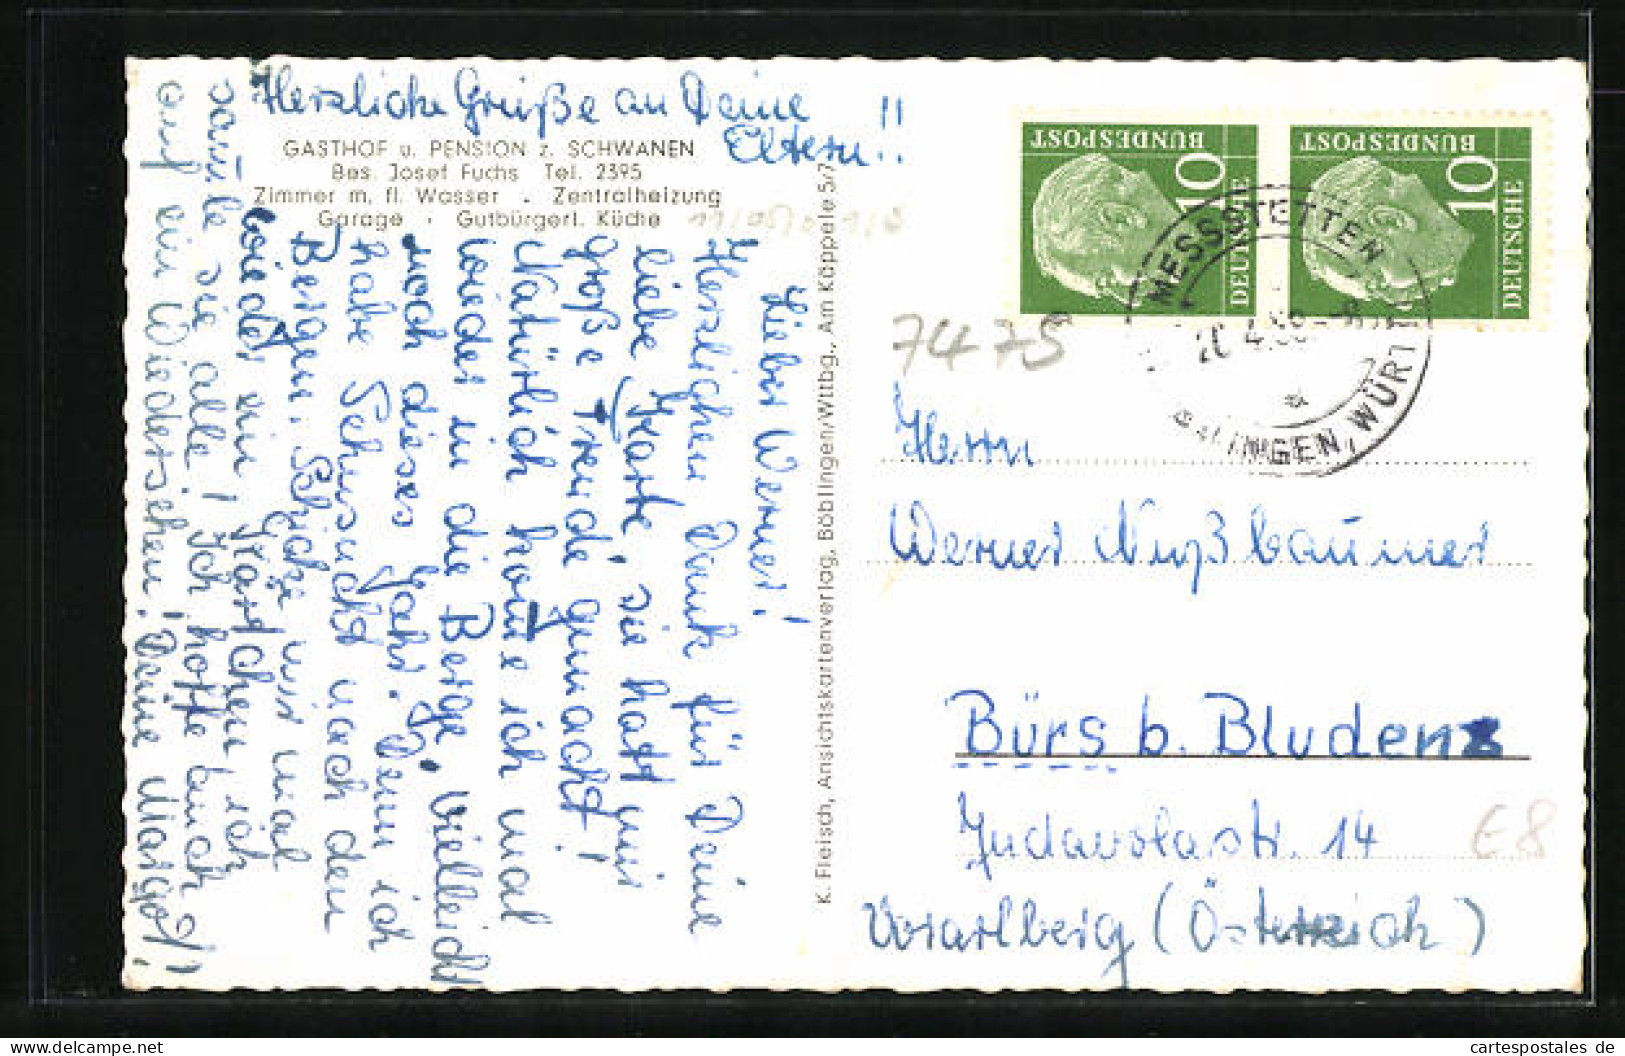 Herzliche Grüße an Deine
Eltern!!
GASTHOF u. PENSION z. SCHWANEN
Bes. Josef Fuchs Tel. 2395
Zimmer m. fl. Wasser · Zentralheizung
Garage · Gutbürgerl. Küche
Lieber Werner!
Herzlichen Dank für Deine
liebe Karte, sie hatt mir
große Freude gemacht!
Natürlich kome ich mal
wieder in die Berge, vielleicht
noch dieses Jahr. Denn ich
habe Sehnsucht nach den
Bergen. Schicke mir mal
wieder ein Kärtchen ich
sam̄le sie alle! Ich hoffe auch
auf ein Wiedersehen! Deine Margot!
K. Fleisch, Ansichtskartenverlag, Böblingen/Wttbg., Am Käppele 5/7
BUNDESPOST
10
DEUTSCHE
BUNDESPOST
10
DEUTSCHE
MESSSTETTEN
BALINGEN, WÜRTT
a
7475
Herrn
Werner Nußbaumer
Bürs b. Bludenz
Judavolastr. 14
€8
Vorarlberg (Österreich)
cartespostales de